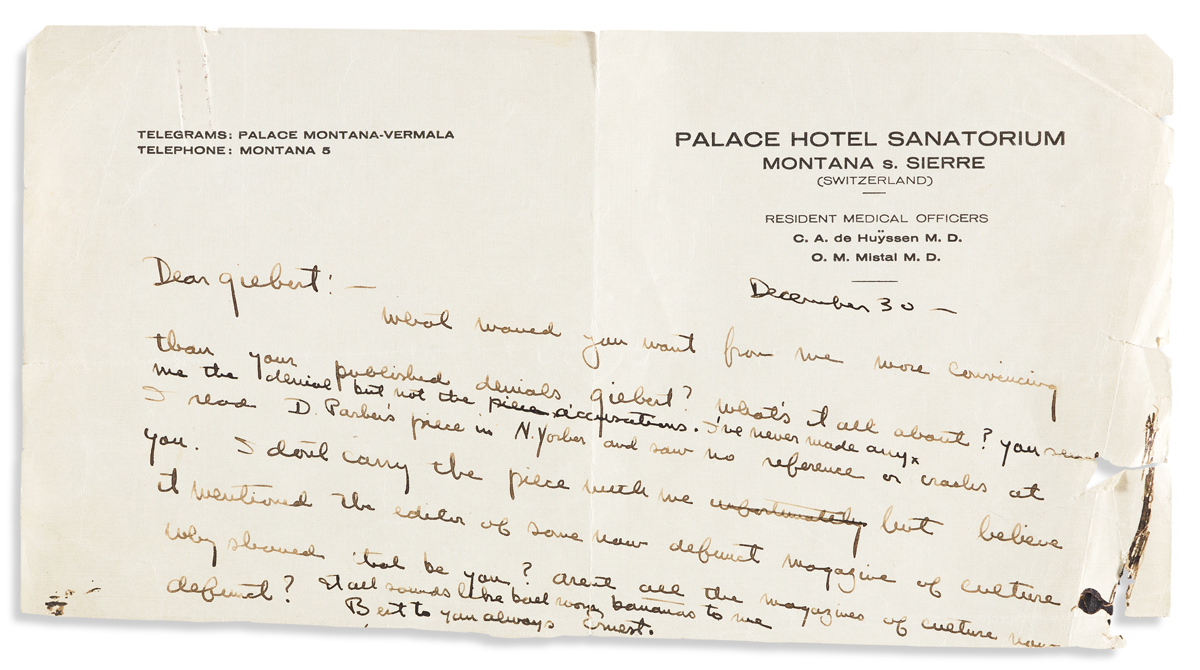 TELEGRAMS: PALACE MONTANA-VERMALA
TELEPHONE: MONTANA 5
PALACE HOTEL SANATORIUM
MONTANA s. SIERRE
(SWITZERLAND)
RESIDENT MEDICAL OFFICERS
C. A. de Huÿssen M. D.
O. M. Mistal M. D.
December 30 —
Dear giebert: —
What would you want from me more convincing
than your published denials giebert? What's it all about? You send
me the denial but not the piece, accusations. I've never made any x
I read D. Parker's piece in N. Yorker and saw no reference or cracks at
you. I don't carry the piece with me unfortunately but believe
it mentioned the editor of some now defunct magazine of culture
Why should that be you? Arent all the magazines of culture now
defunct? It all sounds like bananas to me
Best to you always Ernest.